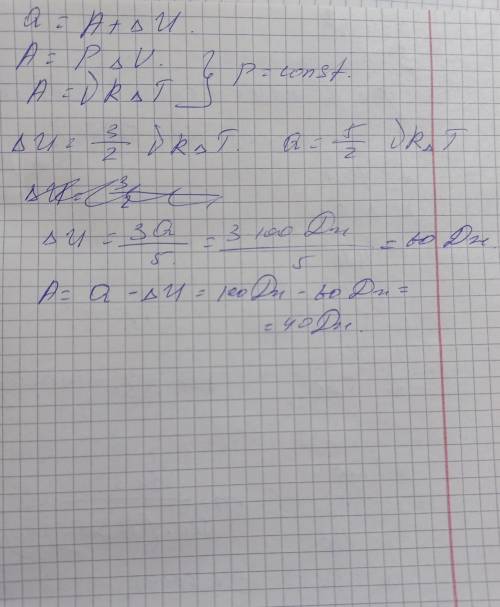 Q = A + ΔU.
A = P ΔV.
A = νRΔT } p = const.
ΔU = 3/2 νRΔT. Q = 5/2 νRΔT
ΔU = 3/2
ΔU = 3Q/5. = 3 100 Дж/5 = 60 Дж
A = Q - ΔU = 100 Дж - 60 Дж =
= 40 Дж.